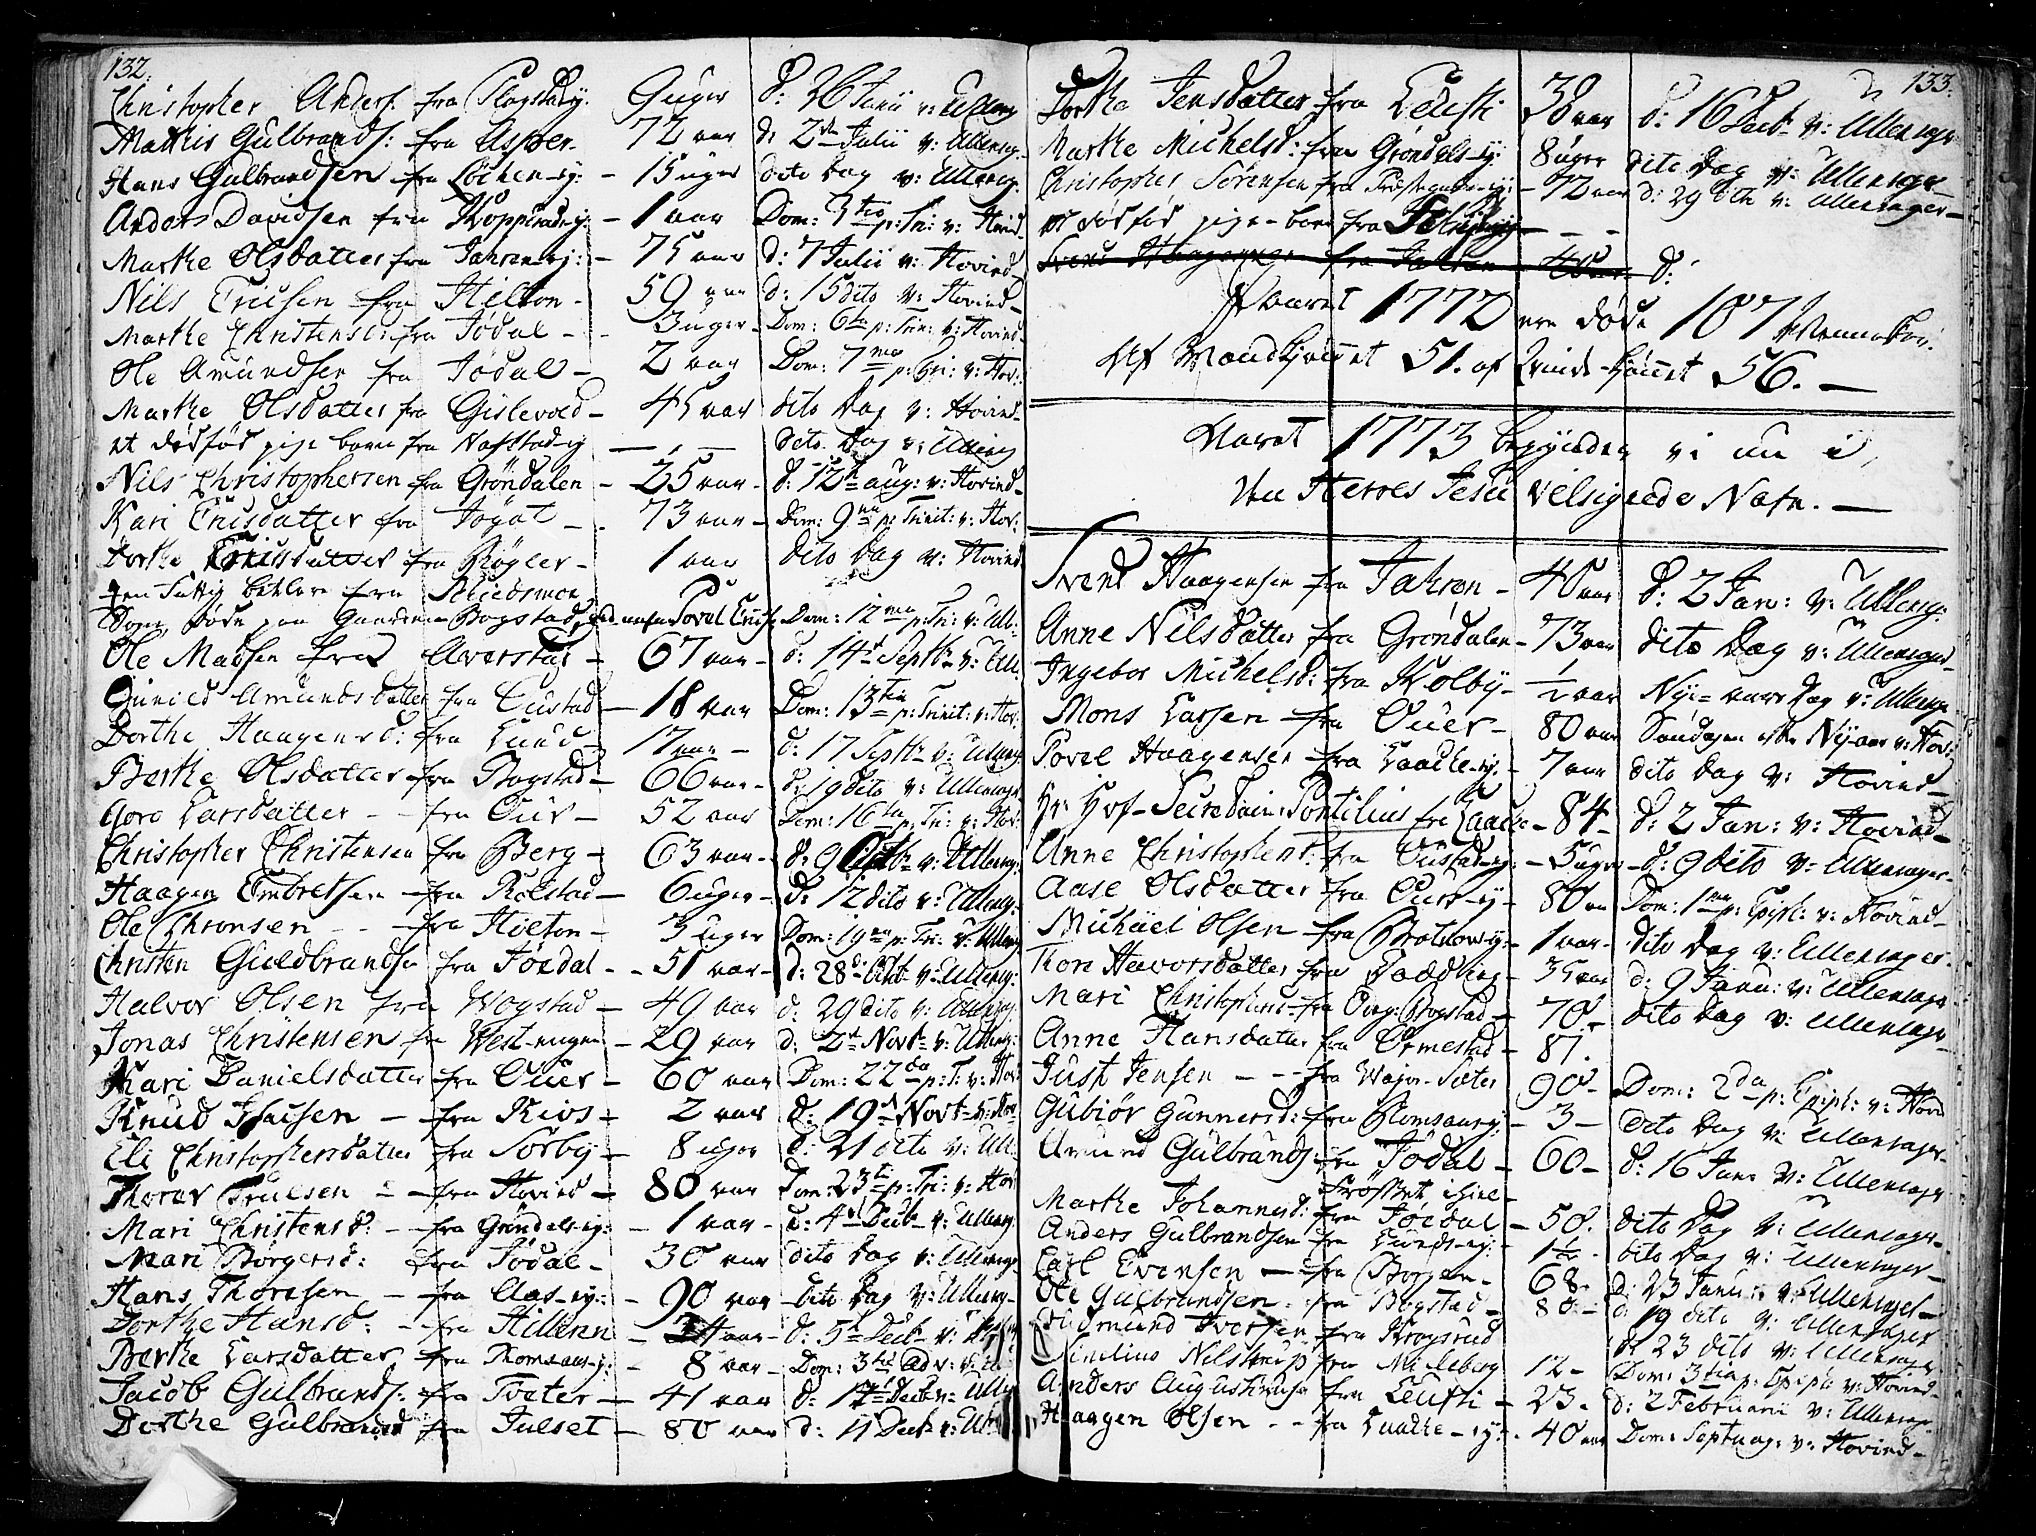 132.
Christopher Anders: fra Slagstadey. 9 uger d: 26 Junii v: Ullensag
Mathis Gulbrands: fra Asper- 72 aar d: 2den Julii v: Ullensag.
Hans Gulbrandsen fra Løchen-ej: - 15 uger dito Dag v: Ullensag.
Anders Davidsen fra Kopperud-ej: - 1 aar Dom: 3tia p: Tri: v: Hovind
Marthe Olsdatter fra Jahren-ej: - 75 aar d: 7 Julii v: Hovind
Nils Ericsen fra Hilton - 59 aar d: 15 dito v: Hovind
Marthe Christensd: fra Jødal - - 3 uger - Dom: 6ta p: Trin: v: Hovind
Ole Amundsen fra Jødal - 2 aar Dom: 7ma p: Tri: v: Hov:
Marthe Olsdatter fra Gislevold - 45 aar dito Dag v: Hovind
et dødfød pige barn fra Nafstad-ej - - - dito Dag v: Ullensag
Nils Christophersen fra Grøndalen - 25 aar - d: 12te aug: v: Hovind
Kari Ericsdatter fra Jøgat - 73 aar - Dom: 9na p: Trinit: v: Hov:
Dorthe Ericsdatter fra Røgler - 1 aar dito Dag v: Hovind
en fattig betler fra Schiedsmoe
Sogn, døde paa Gaarden Bogstad, ved nafn Povel Erichs: Dom: 12ma p: Tri: v: Ull:
Ole Madsen fra Averstad - 67 aar - d: 14de Septbr v: Ull:
Gunild Amundsdatter fra Custad - 18 aar Dom: 13tia p: Trinit: v: Hov:
Dorthe Haagensd: fra Lund - 17 aar - d: 17 Septbr v: Ullensag
Berthe Olsdatter fra Bogstad - 66 aar - d: 19 dito v: Ullensager
Goro Larsdatter - - fra Ouer - 52 aar Dom: 16ta p: Tri: v: Hov:
Christopher Christensen fra Berg - 63 aar - d: 9 Octbr v: Ullensag:
Haagen Embretsen fra Rolstad - 6 uger - d: 12 dito v: Ullensag:
Ole Chronsen - - fra Hilton - 3 uger Dom: 19na p: Tri: v: Ullensag
Christen Guldbrandsen fra Jødal - - 51 aar - d: 28de Octbr v: Ullensag:
Halvor Olsen fra Wogstad - 49 aar d: 29 dito v: Ullensag:
Jonas Christensen fra West-engen - 29 aar d: 2den Novbr v: Ullensag:
Kari Danielsdatter fra Ouer - 60 aar Dom: 22da p: T: v: Hov:
Knud Isacsen - fra Kios - 2 aar d: 19de Novbr v: Hov
Eli Christophersdatter fra Sørby - 8 uger d: 21 dito v: Ull:
Thorer Truelsen - - fra Hovind - 80 aar Dom: 23tia p: Tri: v: Hov
Mari Christensd: - fra Grøndals-ej: - 1 aar - d: 4de Decbr v: Ullensag:
Mari Børgersd: fra Jødal - 30 aar dito Dag v: Ullensag
Hans Thoresen - fra Aas-ej: - 90 aar - dito Dag v: Ullensag
Dorthe Hansd: - fra Hilleren - aar - d: 5te Decbr v:
Berthe Larsdatter fra Thomsaas-ej: - 8 aar - Dom: 3tia Adv: v: Ull
Jacob Gulbrands: fra Tveter - 41 aar d: 17de Decbr v: Ull
Dorthe Gulbransd fra Julset - 80 aar d: 11 Decbr v: Ull
133.
Dorthe Jensdatter fra Leusti 38 aar d: 16 Decbr v: Ullensager
Marthe Michelsd: fra Grøndals-ej: 8 uger dito Dag v: Ullensager
Christopher Sørensen fra Præstegaards-ej: - 72 aar d: 29 dito v: Ullensager -
et dødfød pige-barn fra - - -
Svend Haagensen fra Jahren 40 aar d:
Aaret 1772 ere døde 107 Mennesker.
Af Mandkjønnet 51. af Qvinde-Kjønnet 56. -
Aaret 1773 begynder vi nu i
Vor Herres Jesu Velsignede Nafn. -
Svend Haagensen fra Jahren - 40 aar d: 2 Jan: v: Ullensag:
Anne Nilsdatter fra Grøndalen - 73 aar dito Dag v: Ullensager
Ingebor Michelsd: fra Kolby - 1/2 aar Nyt-aars Dag v: Ullensager
Mons Larsen fra Ouer - 80 aar Søndagen efter Ny-aar v: Hov:
Povel Haagensen fra Laache-ej: - 7 aar dito Dag v: Hovind
Hr: Hof-Secretair: Pontilius fra Laache - 84 - d: 2 Jan: v: Hovind
Anne Christophersd: fra Custad-ej: - 5 uger - d: 9 dito v: Ullensager
Aase Olsdatter fra Ouer-ej - 80 aar Dom: 1ma p: Epiph: v: Hovind
Michael Olsen fra - 1 aar - dito Dag v: Ullensager.
Thore Havorsdatter fra - 35 aar d: 9 Janu: v: Ullensager
Mari Christophersd: fra Bogstad - 70. - dito Dag v: Ullensager
Anne Hansdatter fra Ormestad - 87.
Just Jensen - - fra Major-Sæter 90 - Dom: 2da p: Epiph: v: Hovind
Gubiør Gunnersd: fra Romsaasej: - 3 - dito Dag v: Ullensager
Amund Gulbrands: fra Jødal - 60 - d: 16 Janu v: Ullensager
Marthe Johannesd: fra Jødal - 50. dito Dag v: Ullensager
Anders Gulbrandsen fra Lunds-ej: - 1 1/2 - dito Dag v: Ullensager
Carl Evensen - fra Borgen - 68. d: 23 Janu: v: Ullensager
Ole Gulbrandsen - fra Bogstad - 80 - d: 19 dito v: Ullensager
Gudmund Iversen fra Krogsrud d: 23 dito v: Ullensager
Nilstrup fra Mickleberg 12 - Dom: 3tia p: Epiph: v: Hovind
Anders Augustinusen fra Leusti - 23. d: 2 Februarii v: Ullensager
Haagen Olsen - - fra Laache-ej: - 40 aar Dom: Septuag: v: Hovind